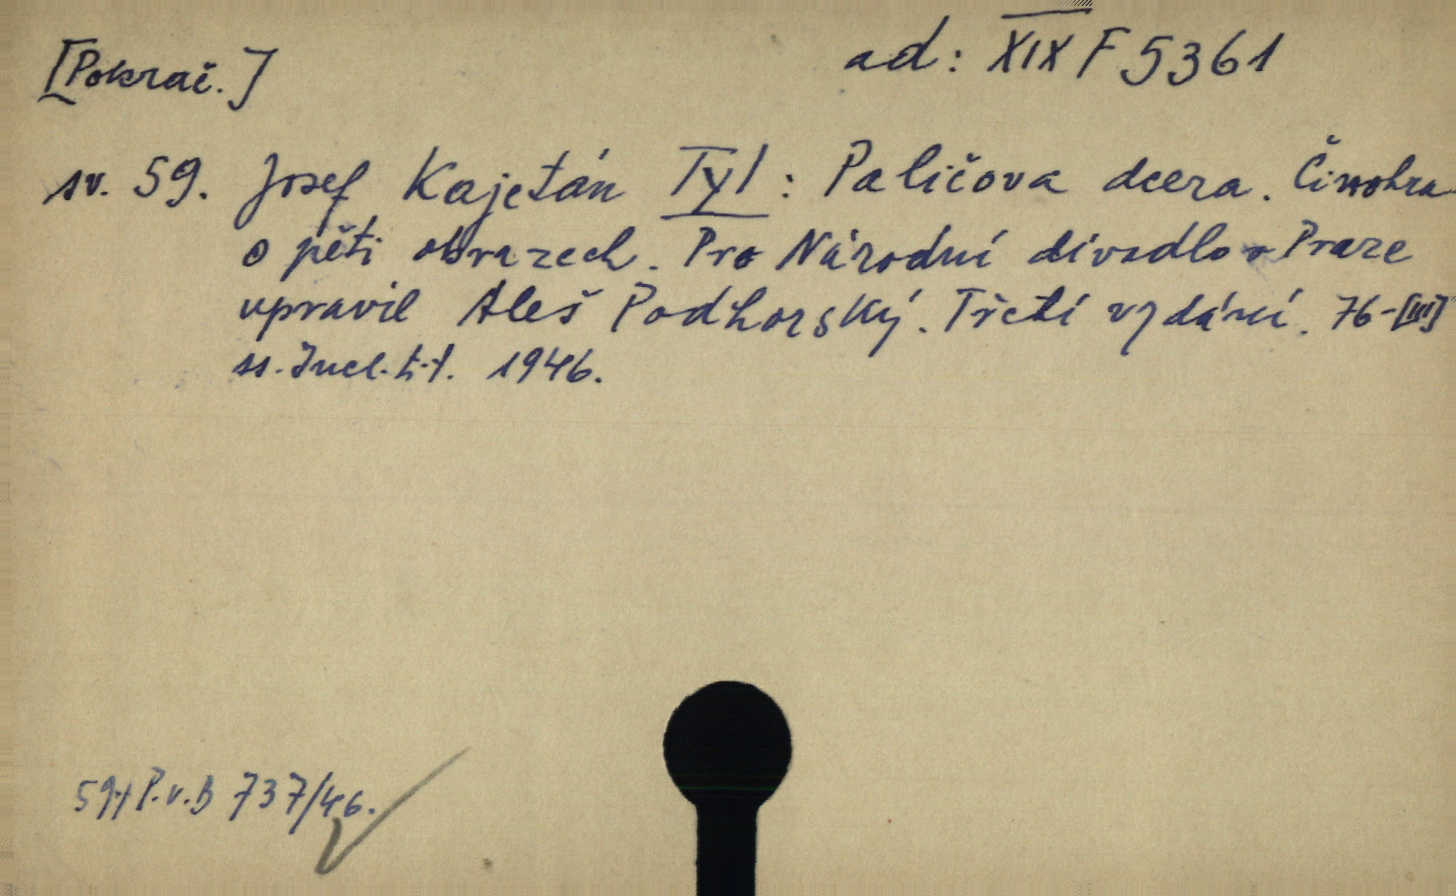 [Pokrač.]
ad: XIX F 5361
sv. 59. Josef Kajetán Tyl: Paličova dcera. Činohra
o pěti obrazech. Pro Národní divadlo v Praze
upravil Aleš Podhorský. Třetí vydání. 76-[III]
ss. Incl. t.-l. 1946.
59+/P.v.B 737/46.